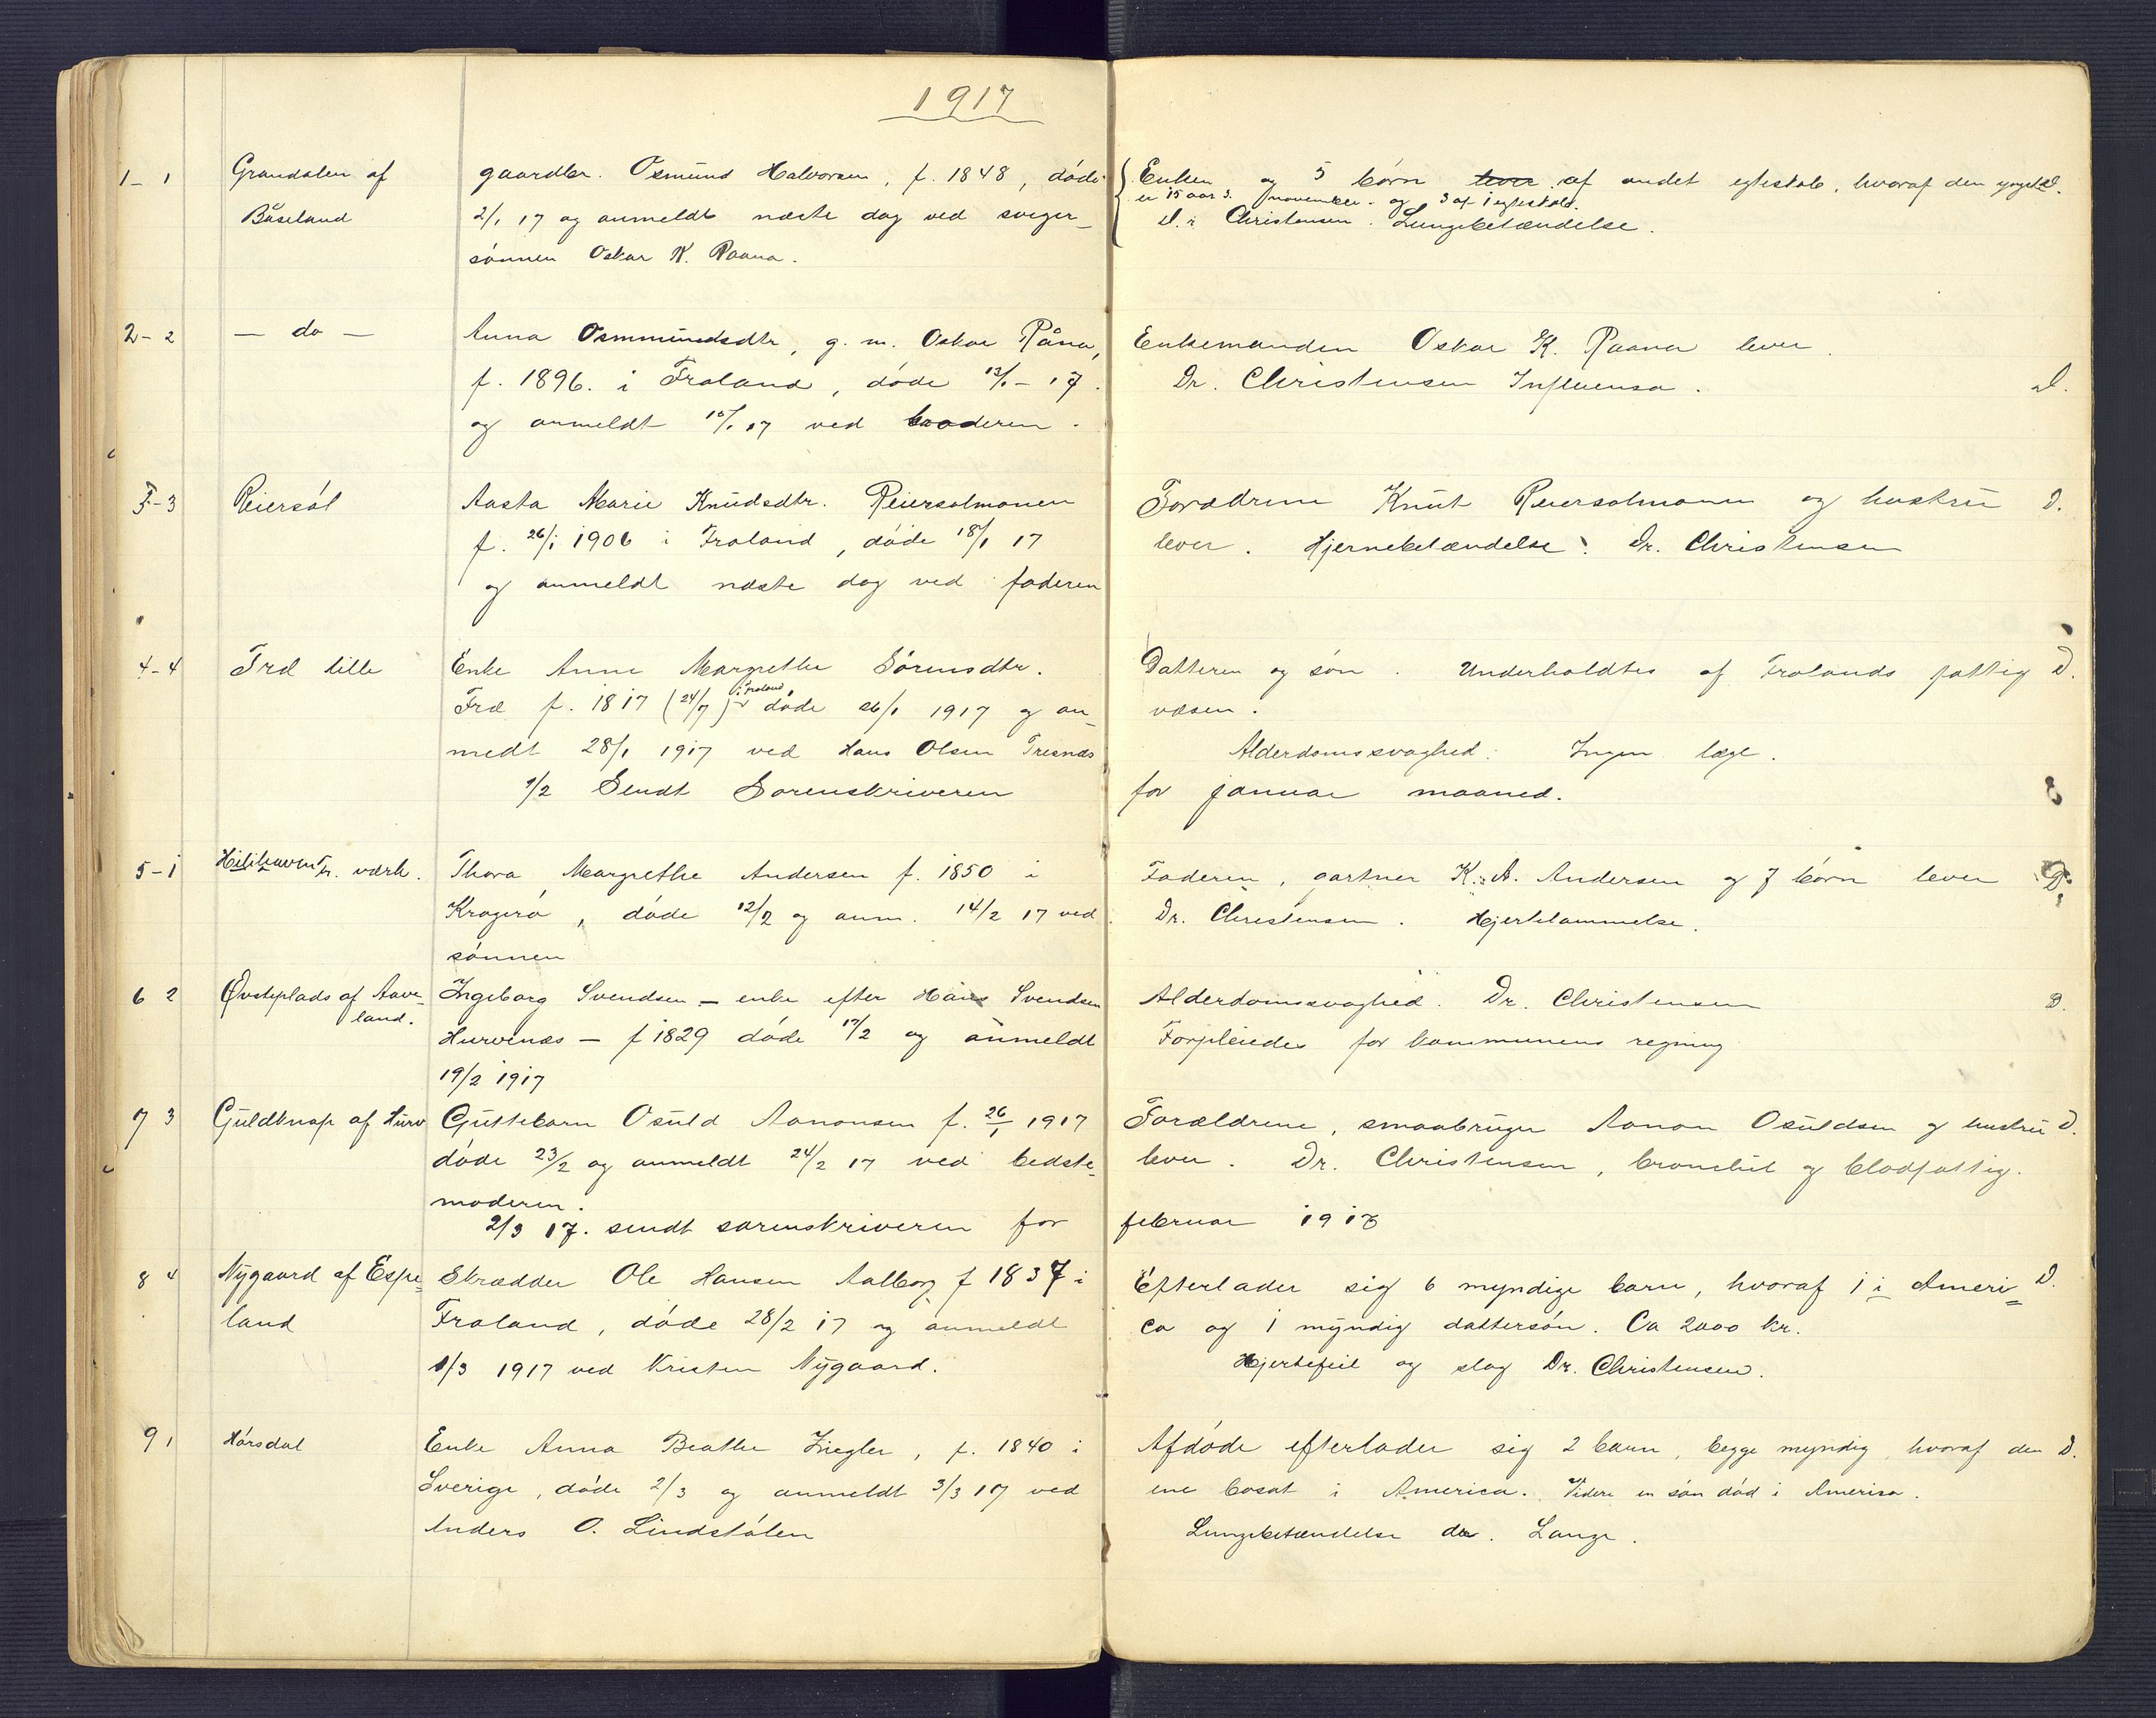 1917
1 - 1 Grandalen af gaardbr. Osmund Halvorsen, f. 1848, døde
Båseland 2/1 17 og anmeldt næste dag ved sviger-
sønnen Oskar K. Raana.
Enken og 5 børn lever af andet egteskab, hvoraf den yngste D.
er 15 aar 3. november. og 3 af i egteskab.
Dr. Christensen. Lungebetændelse.
2 - 2 — do — Anna Osmundsdtr, g. m. Oskar Råna,
f. 1896. i Froland, døde 13/1 - 17.
og anmeldt 15/1 17 ved broderen.
Enkemanden Oskar K. Raana lever.
Dr. Christensen Influensa. D.
3 - 3 Reiersøl Aasta Marie Knudsdtr. Reiersølmonen
f. 26/1 1906 i Froland, døde 18/1 17
og anmeldt næste dag ved faderen
Forældrene Knut Reiersølmonen og hustru D.
lever. Hjernebetændelse. Dr. Christensen
4 - 4 Frd lille Enke Anne Margrethe Sørensdtr.
Frd f. 1817 (24/7) i Froland, døde 26/1 1917 og an-
medt 28/1 1917 ved Hans Olsen Tresnæs
1/2 Sendt Sorenskriveren
Datteren og søn. Underholdtes af Frolands fattig D.
væsen.
Alderdomssvaghed. Ingen læge.
for januar maaned.
5 - 1 Fr. værk. Thora Margrethe Andersen f. 1850 i
Kragerø, døde 12/2 og anm. 14/2 17 ved
sønnen
Faderen, gartner K. A. Andersen og 7 børn lever D.
Dr. Christensen. Hjertelammelse.
6 2 Øvsteplads af Aave- Ingeborg Svendsen - enke efter Hans Svendsen
land. Hurvenæs - f 1829 døde 17/2 og anmeldt
19/2 1917
Alderdomssvaghed. Dr. Christensen D.
Forpleiedes for kommunens regning
7 3 Guldknap af Hurv Guttebarn Osuld Aanonsen f. 26/1 1917
døde 23/2 og anmeldt 24/2 17 ved bedste-
moderen.
2/3 17. sendt sorenskriveren for
Forældrene, smaabruger Aanon Osuldsen og hustru D.
lever. Dr. Christensen, bronchit og blodfattig.
februar 1917
8 4 Nygaard af Espe- Skrædder Ole Hansen Aalborg f 1837 i
land Froland, døde 28/2 17 og anmeldt
1/3 1917 ved Kristen Nygaard.
Efterlader sig 6 myndige barn, hvoraf 1 i Ameri- D.
ca og 1 myndig dattersøn. Ca 2000 kr.
Hjertefeil og slag Dr. Christensen.
9 1 Hørsdal Enke Anna Beathe Ziegler, f. 1840 i
Sverige, døde 2/3 og anmeldt 3/3 17 ved
Anders O. Lindstølen
Afdøde efterlader sig 2 barn, begge myndig, hvoraf den D.
ene bosat i America. Videre en søn død i America.
Lungebetændelse dr. Lange.